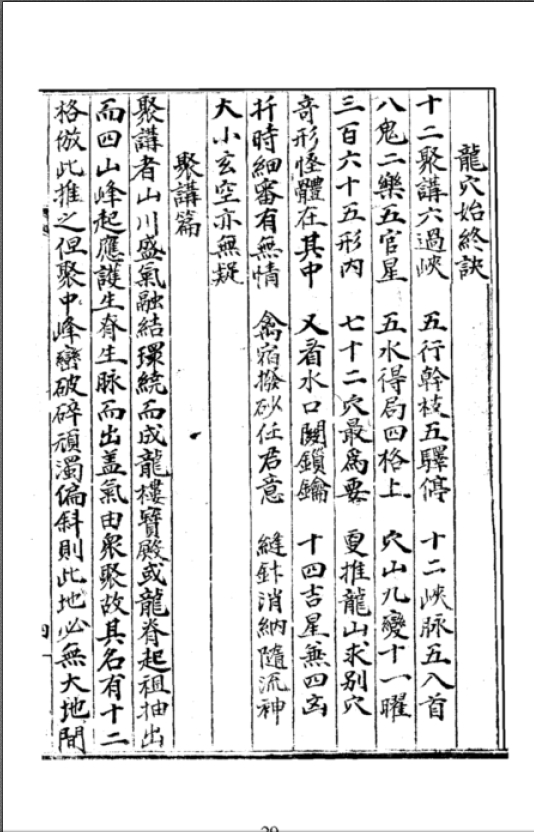 龍穴始終訣
十二聚講六過峽 五行幹枝五驛停 十二峽脉五入首
八鬼二樂五官星 五水得局四格上 穴山九變十一曜
三百六十五形內 七十二穴最爲要 更推龍山求别穴
奇形怪體在其中 又看水口關鎖鑰 十四吉星兼四凶
扦時細審有無情 禽宿撥砂任君意 縫針消納隨流神
大小玄空亦無疑
聚講篇
聚講者山川盛氣融結環繞而成龍樓寶殿或龍脊起祖抽出
而四山峰起應護生脊生脉而出盖氣由衆聚故其名有十二
格倣此推之但聚中峰巒破碎頑濁偏斜則此地必無大地間
四
29